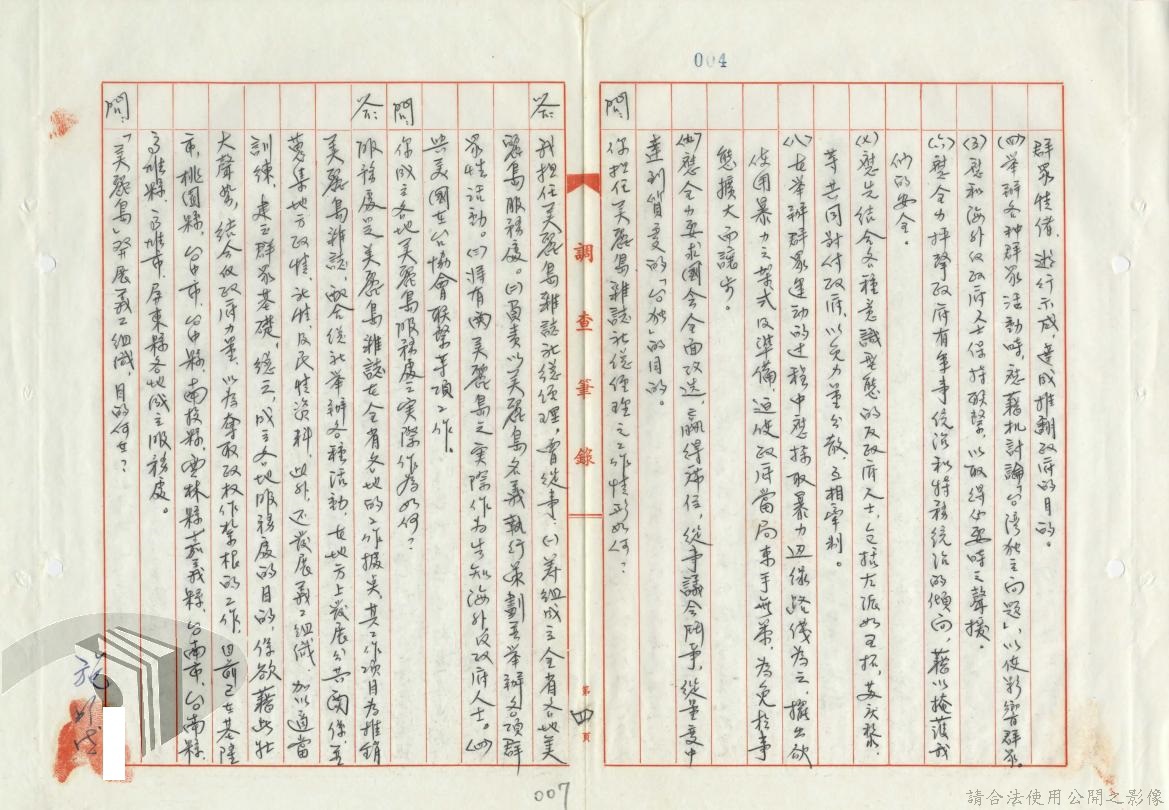 004
群眾情緒，遊行示威，達成推翻政府的目的。
(四)舉辦各种群眾活動時，應藉机討論「台湾独立問題」，以便影響群眾。
(5)應和海外反政府人士保持联繫，以取得必要時之聲援。
(六)應全力抨擊政府有軍事統治和特務統治的傾向，藉以掩護我
們的安全。
(七)應先結合各種意識型態的反政府人士，包括左派如王拓、苏庆黎，
等共同对付政府，以免力量分散，互相牽制。
(八)在举辦群眾運动的过程中應採取暴力边缘路线為主，擺出欲
使用暴力之架式及準備，迫使政府當局束手無策，為免於事
態擴大而讓步。
(九)應全力要求國会全面改选，贏得席位，從事議会鬥爭，從量变中
達到質变的「台独」的目的。
問：你担任美麗島雜誌社總經理之工作情形如何？
調查筆錄
第四頁
答：我担任美麗島雜誌社總經理，曾從事：(一)籌組成立全省各地美
麗島服務處。(二)負責以美麗島名義執行策劃並举辦各項群
眾性活动。(三)將有關美麗島之实際作為告知海外反政府人士。(四)
與美國在台協會联繫等項工作。
問：你成立各地美麗島服務處之实際作為如何？
答：服務處是美麗島雜誌在全省各地的工作據点，其工作項目為推銷
美麗島雜誌，配合總社举辦各種活动，在地方上发展公共関係並
蒐集地方政情、社情，及民情资料，此外，还发展義工組織，加以適當
訓練，建立群眾基礎，總之，成立各地服務處的目的，係欲藉此壯
大聲勢，結合反政府力量，以為奪取政权作紮根的工作，目前已在基隆
市、桃園縣、台中市、台中縣、南投縣、雲林縣、嘉義縣、台南市、台南縣、
高雄縣、高雄市、屏東縣各地成立服務處。
問：「美麗島」發展義工組織，目的何在？
施明德
007
請合法使用公開之影像